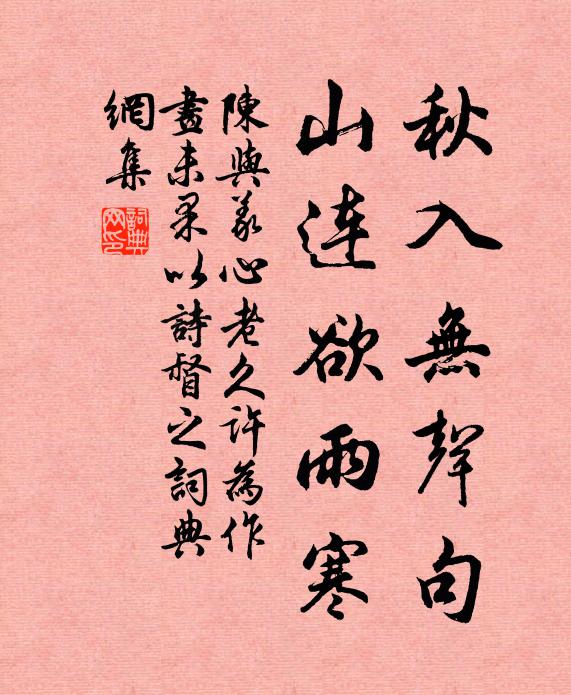 秋入無聲句
山連欲雨寒
陳與義心老久許為作
畫未果以詩督之詞典
網集
詞典网印